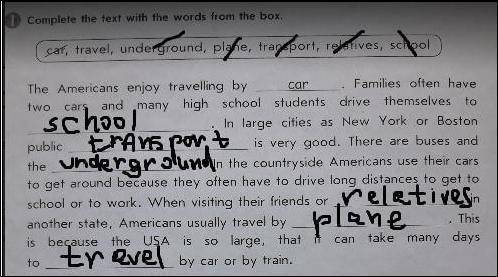 1 Complete the text with the words from the box.
car, travel, underground, plane, transport, relatives, school
The Americans enjoy travelling by car . Families often have
two cars and many high school students drive themselves to
school . In large cities as New York or Boston
public transport is very good. There are buses and
the underground In the countryside Americans use their cars
to get around because they often have to drive long distances to get to
school or to work. When visiting their friends or relatives in
another state, Americans usually travel by plane . This
is because the USA is so large, that it can take many days
to travel by car or by train.